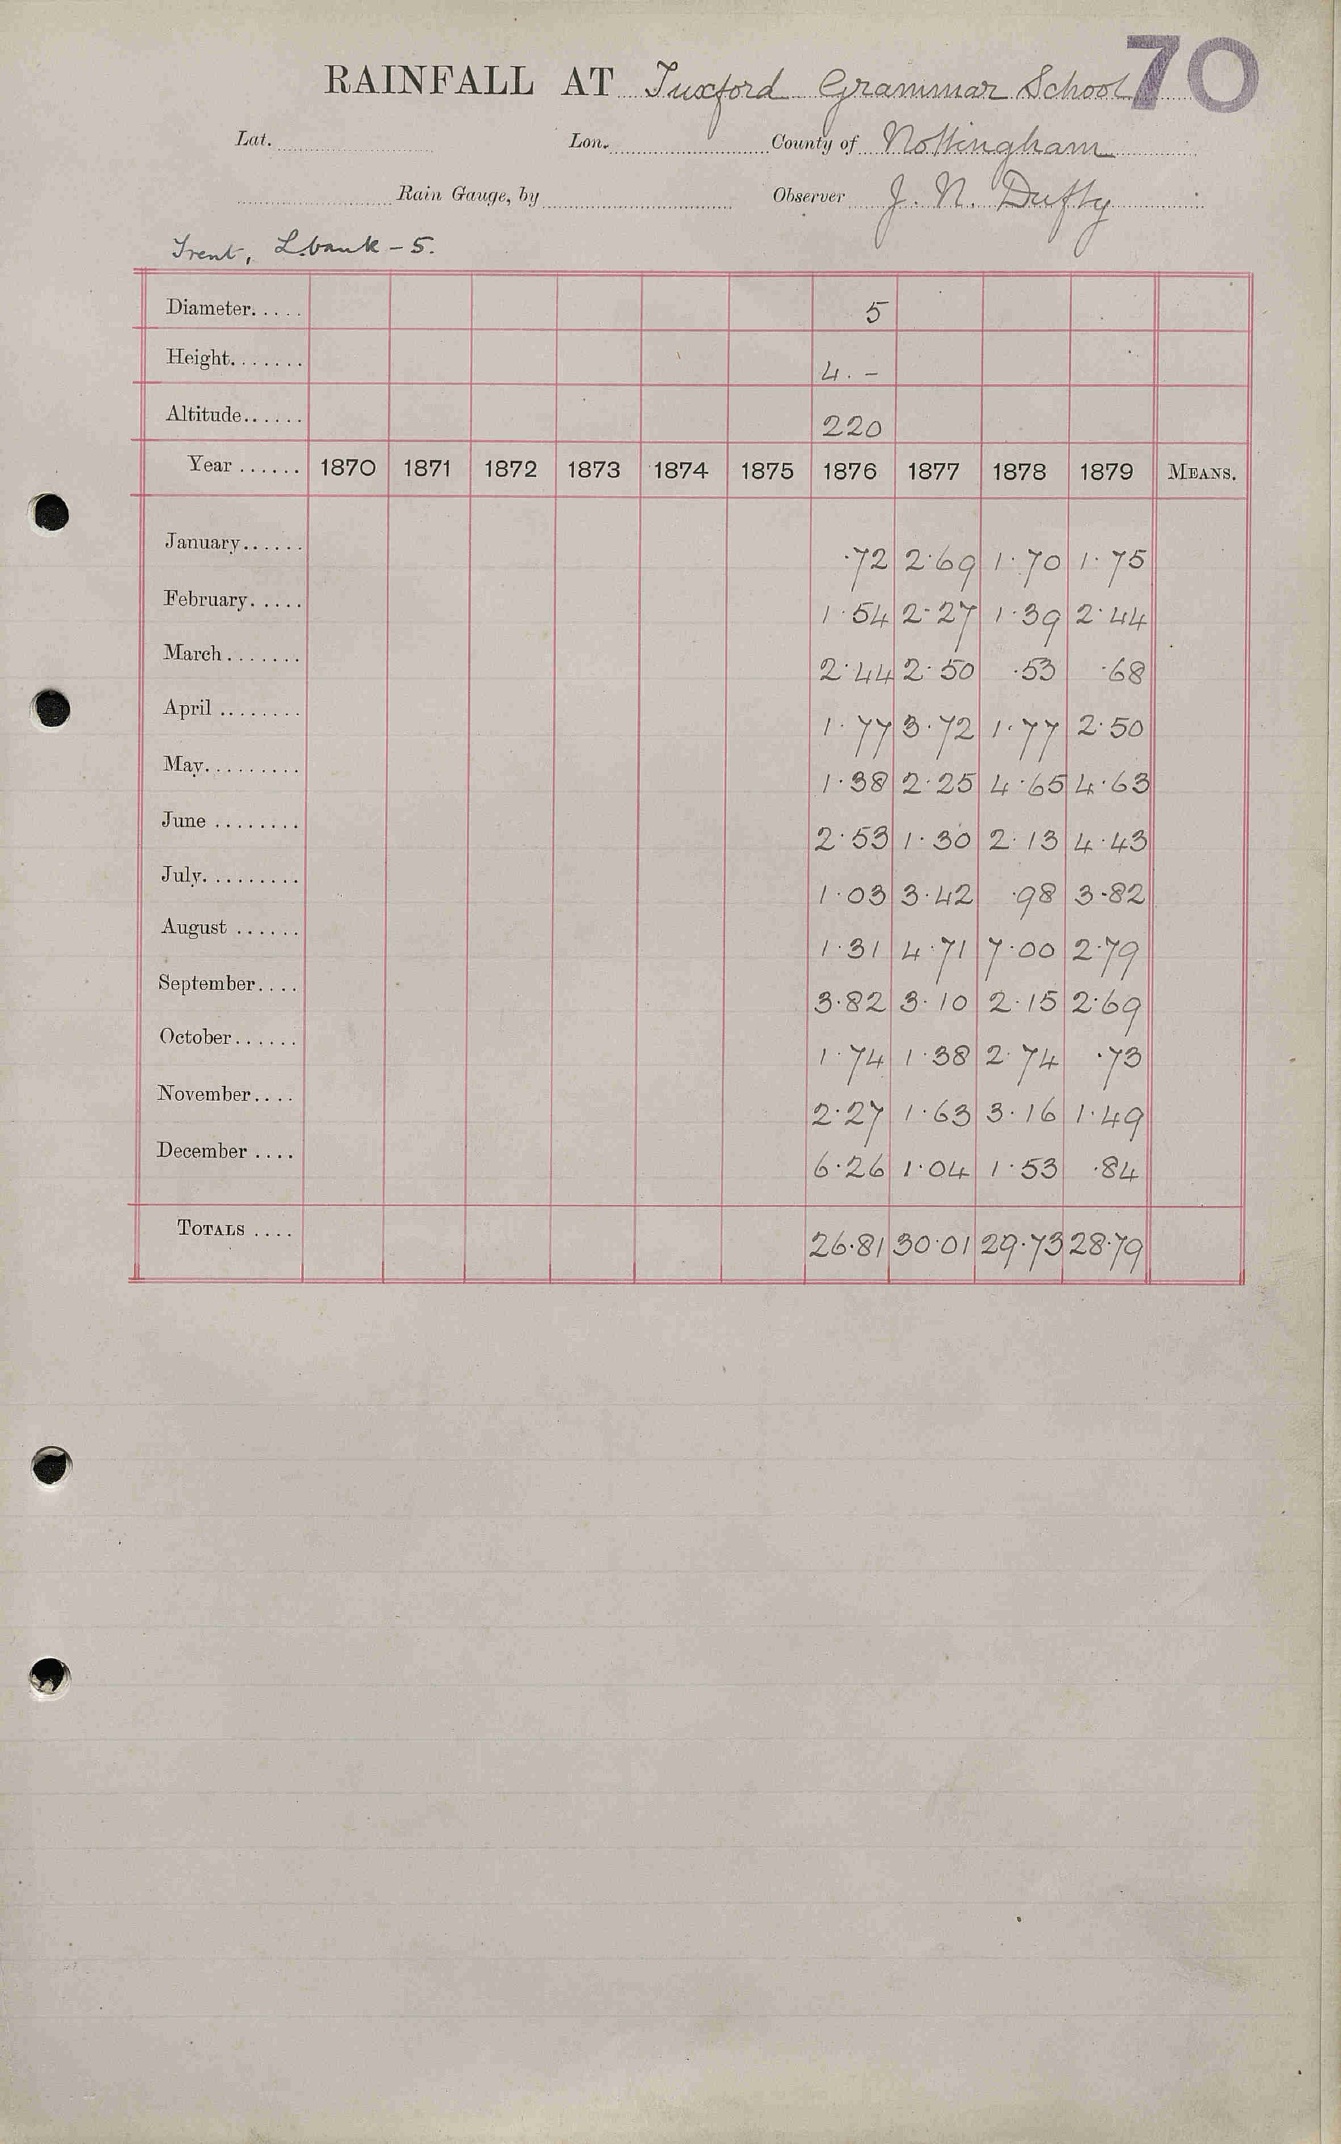 70
RAINFALL AT Tuxford Grammar School
Lat. Lon. County of Nottingham
Rain Gauge, by Observer J. N. Dufty
Trent, L.bank - 5.
Diameter..... 5
Height....... 4. -
Altitude...... 220
Year ...... 1870 1871 1872 1873 1874 1875 1876 1877 1878 1879 MEANS.
January...... ·72 2·69 1·70 1·75
February..... 1·54 2·27 1·39 2·44
March....... 2·44 2·50 ·53 ·68
April ........ 1·77 3·72 1·77 2·50
May......... 1·38 2·25 4·65 4·63
June ........ 2·53 1·30 2·13 4·43
July......... 1·03 3·42 ·98 3·82
August ...... 1·31 4·71 7·00 2·79
September.... 3·82 3·10 2·15 2·69
October...... 1·74 1·38 2·74 ·73
November.... 2·27 1·63 3·16 1·49
December .... 6·26 1·04 1·53 ·84
TOTALS .... 26·81 30·01 29·73 28·79